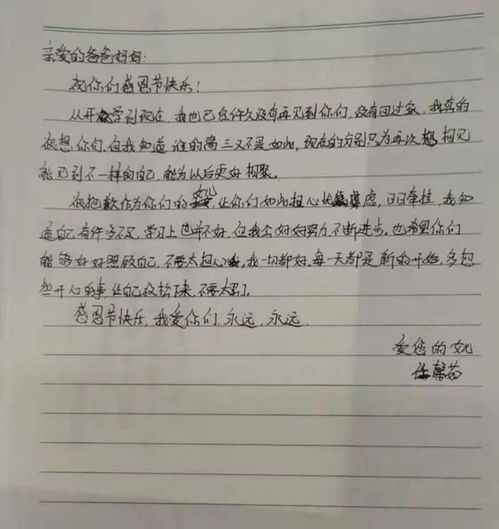 亲爱的爸爸妈妈:
祝你们感恩节快乐!
从开学到现在,我也已经许久没有再见到你们,没有回过家,我真的
很想你们,但我知道谁的高三又不是如此,现在的分别只为再次相见
能见到不一样的自己,能为以后更好相聚。
很抱歉作为你们的女儿,让你们如此担心焦虑,日日牵挂,我知
道自己有许多不足,学习上也并不好,但我会好好努力,不断进步。也希望你们
能够好好照顾自己,不要太担心我,我一切都好。每一天都是新的开始,多想
些开心的事,让自己放松下来,不要太累了。
感恩节快乐,我爱你们,永远,永远.
爱您的女儿
馨茹